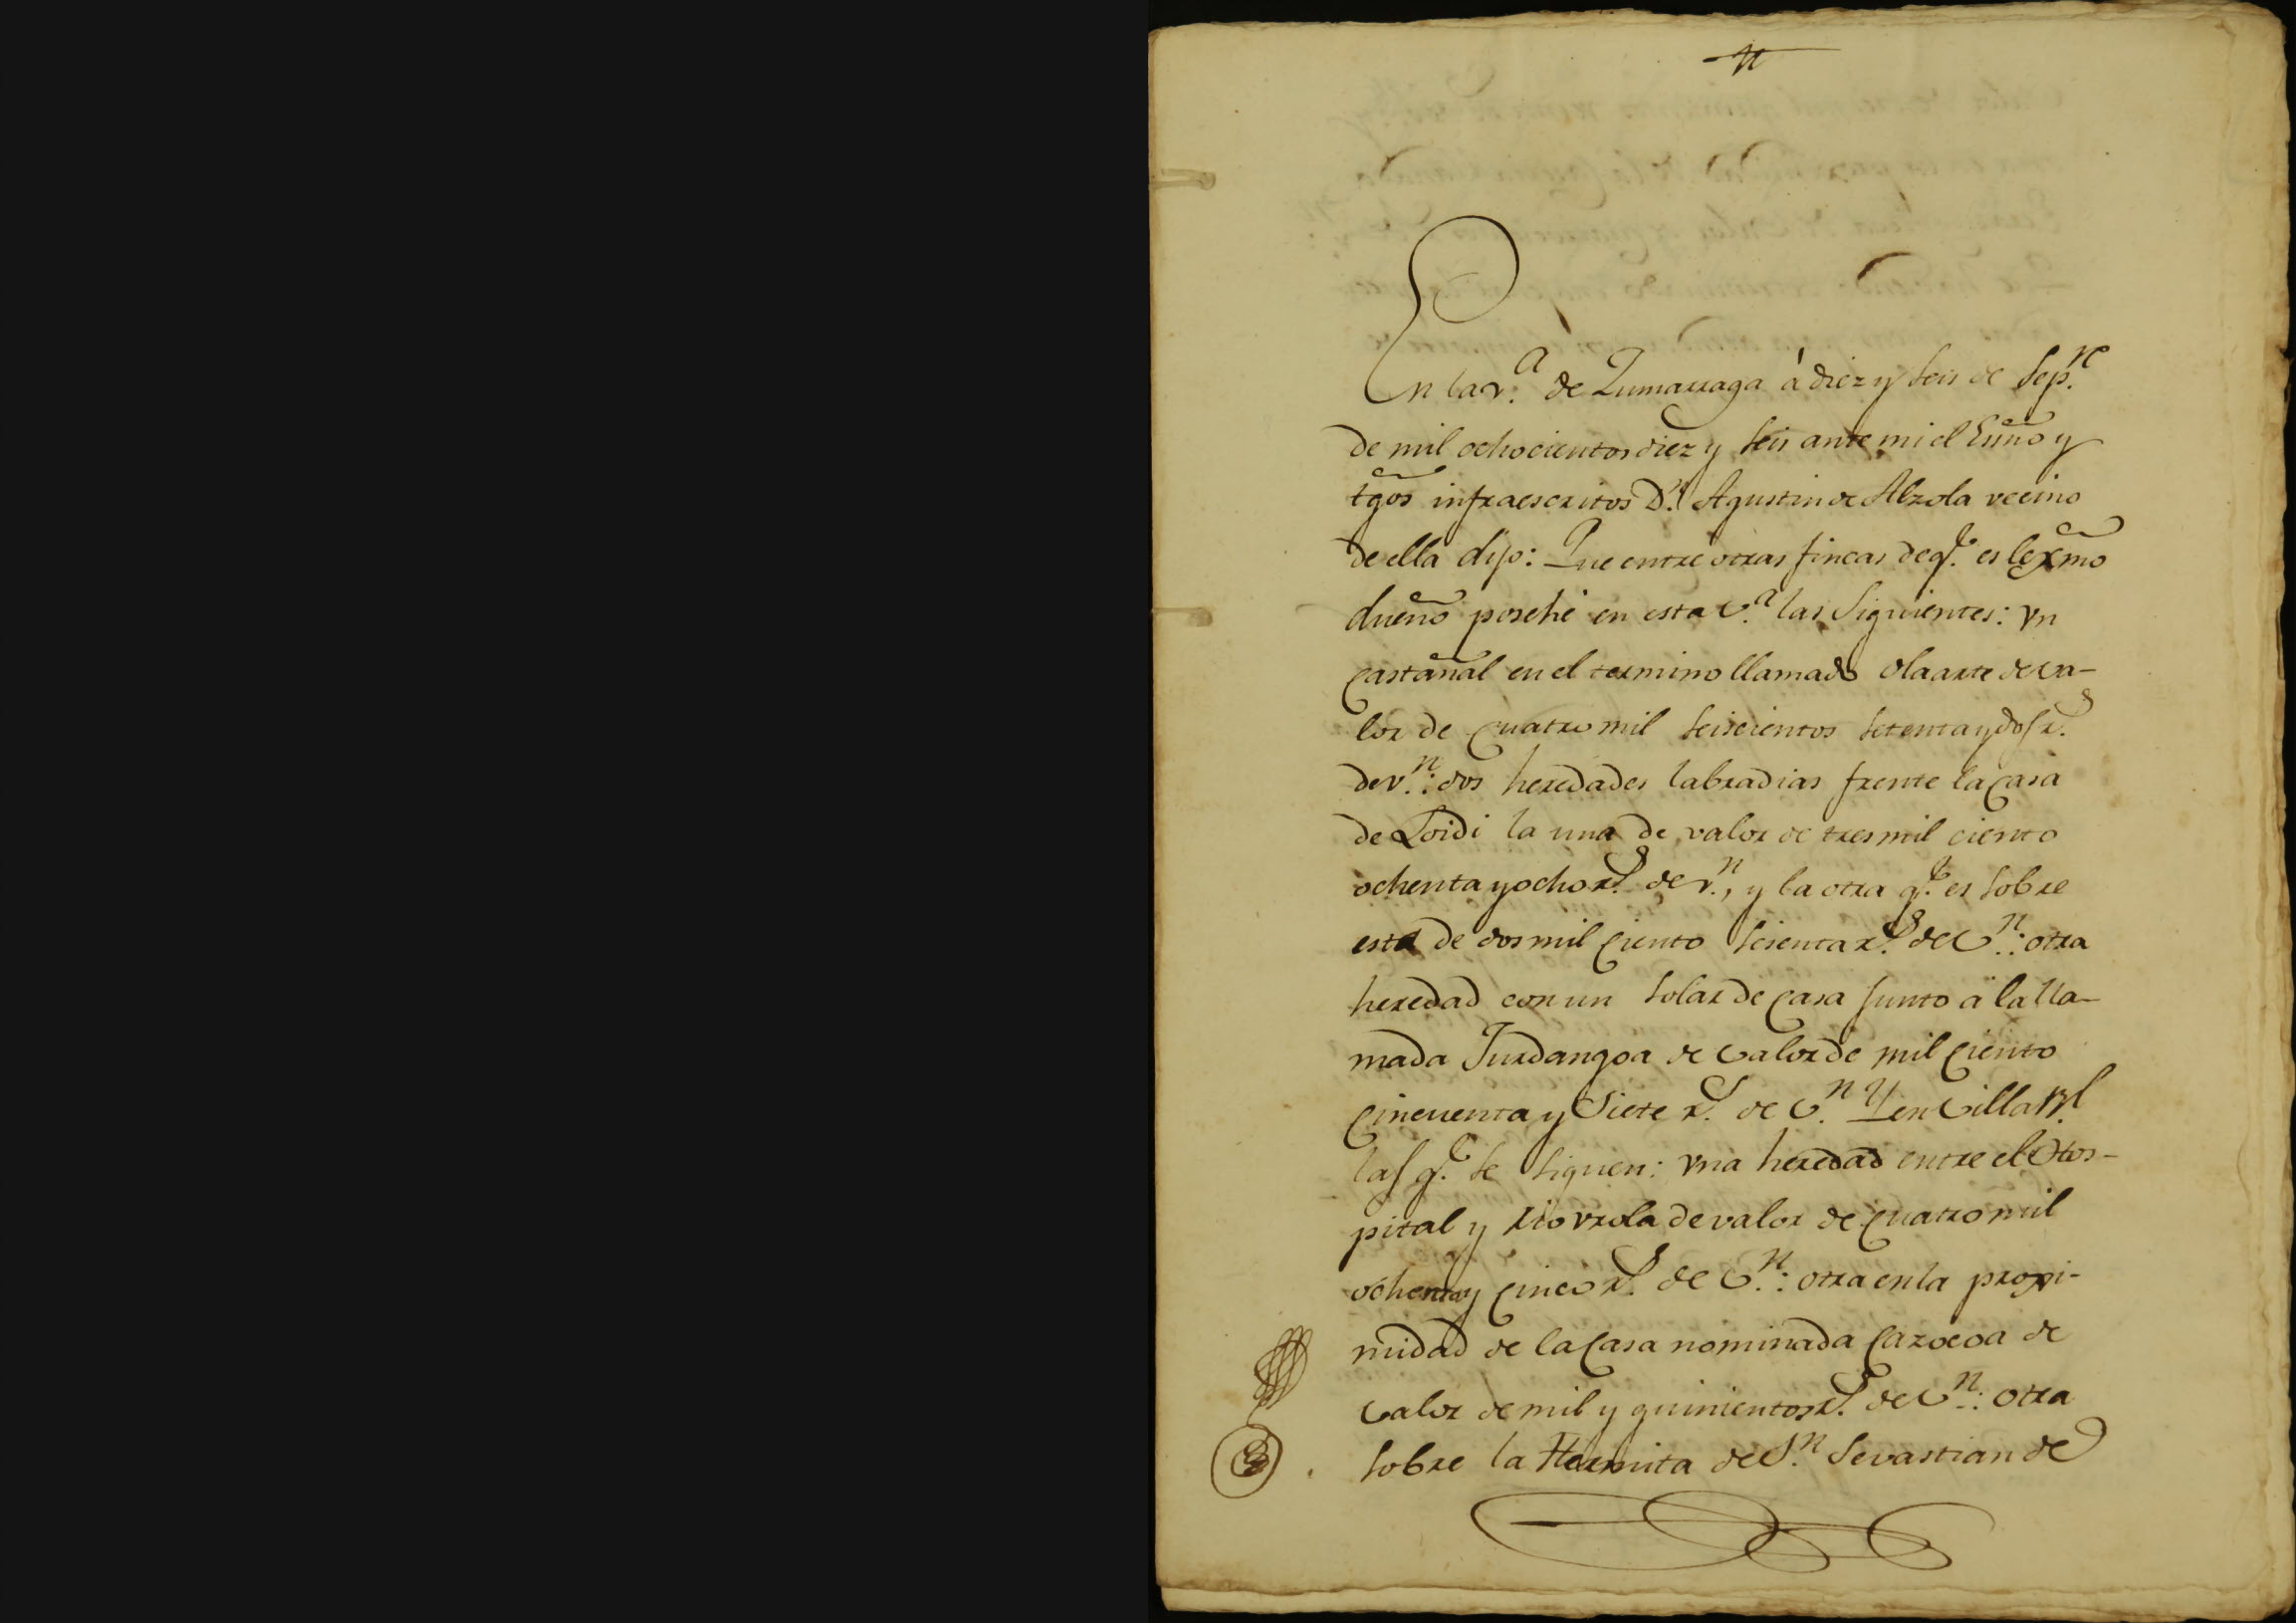 En la v.ª de Zumarraga á diez y seis de Sep.re
de mil ochocientos diez y seis ante mi el Essno y
tgos infraescritos D.n Agustin de Alzola vecino
de ella dijo: Que entre otras fincas de q.e es lexmo
dueño posehé en esta V.ª las siguientes: vn
castañal en el termino llamado Olaarte de va-
lor de cuatro mil seiscientos setenta y dos r.s
de v.n: dos heredades labradias frente la casa
de Loidi la una de valor de tres mil ciento
ochenta y ocho r.s de v.n, y la otra q.e es sobre
esta de dos mil ciento sesenta r.s de v.n: otra
heredad con un solar de casa junto á la lla-
mada Jurdangoa de valor de mil ciento
cincuenta y siete r.s de v.n Y en Villa R.l
las q.e se siguen: vna heredad entre el Hos-
pital y rio vrola de valor de cuatro mil
ochenta y cinco r.s de v.n: otra en la proxi-
midad de la casa nominada Cazocoa de
valor de mil y quinientos r.s de v.n: otra
sobre la Hermita de S.n Sevastian de